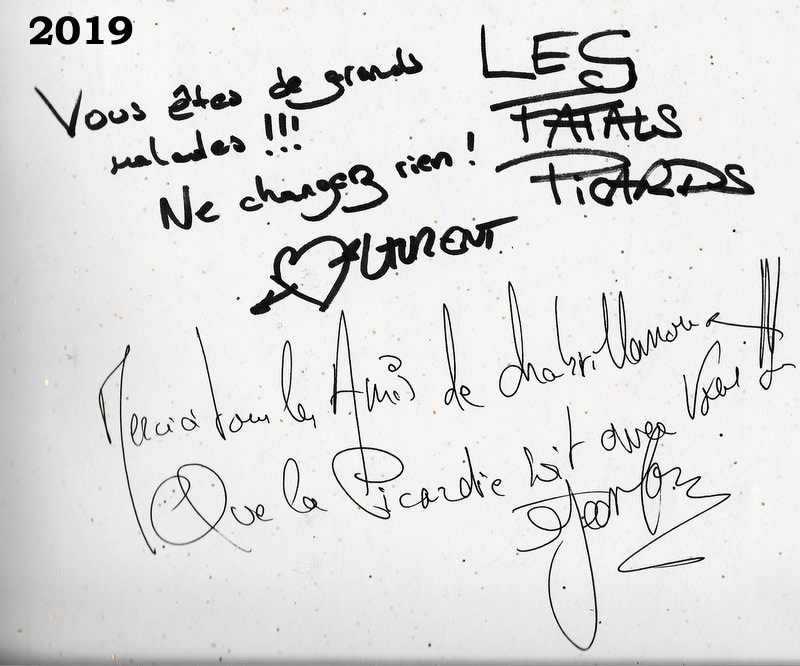 2019
Vous êtes de grands
malades !!!
Ne changez rien !
LAURENT
LES
FATALS
PICARDS
Merci à tous les Amis de chabrillanoux !!
Que la Picardie soit avec vous !!